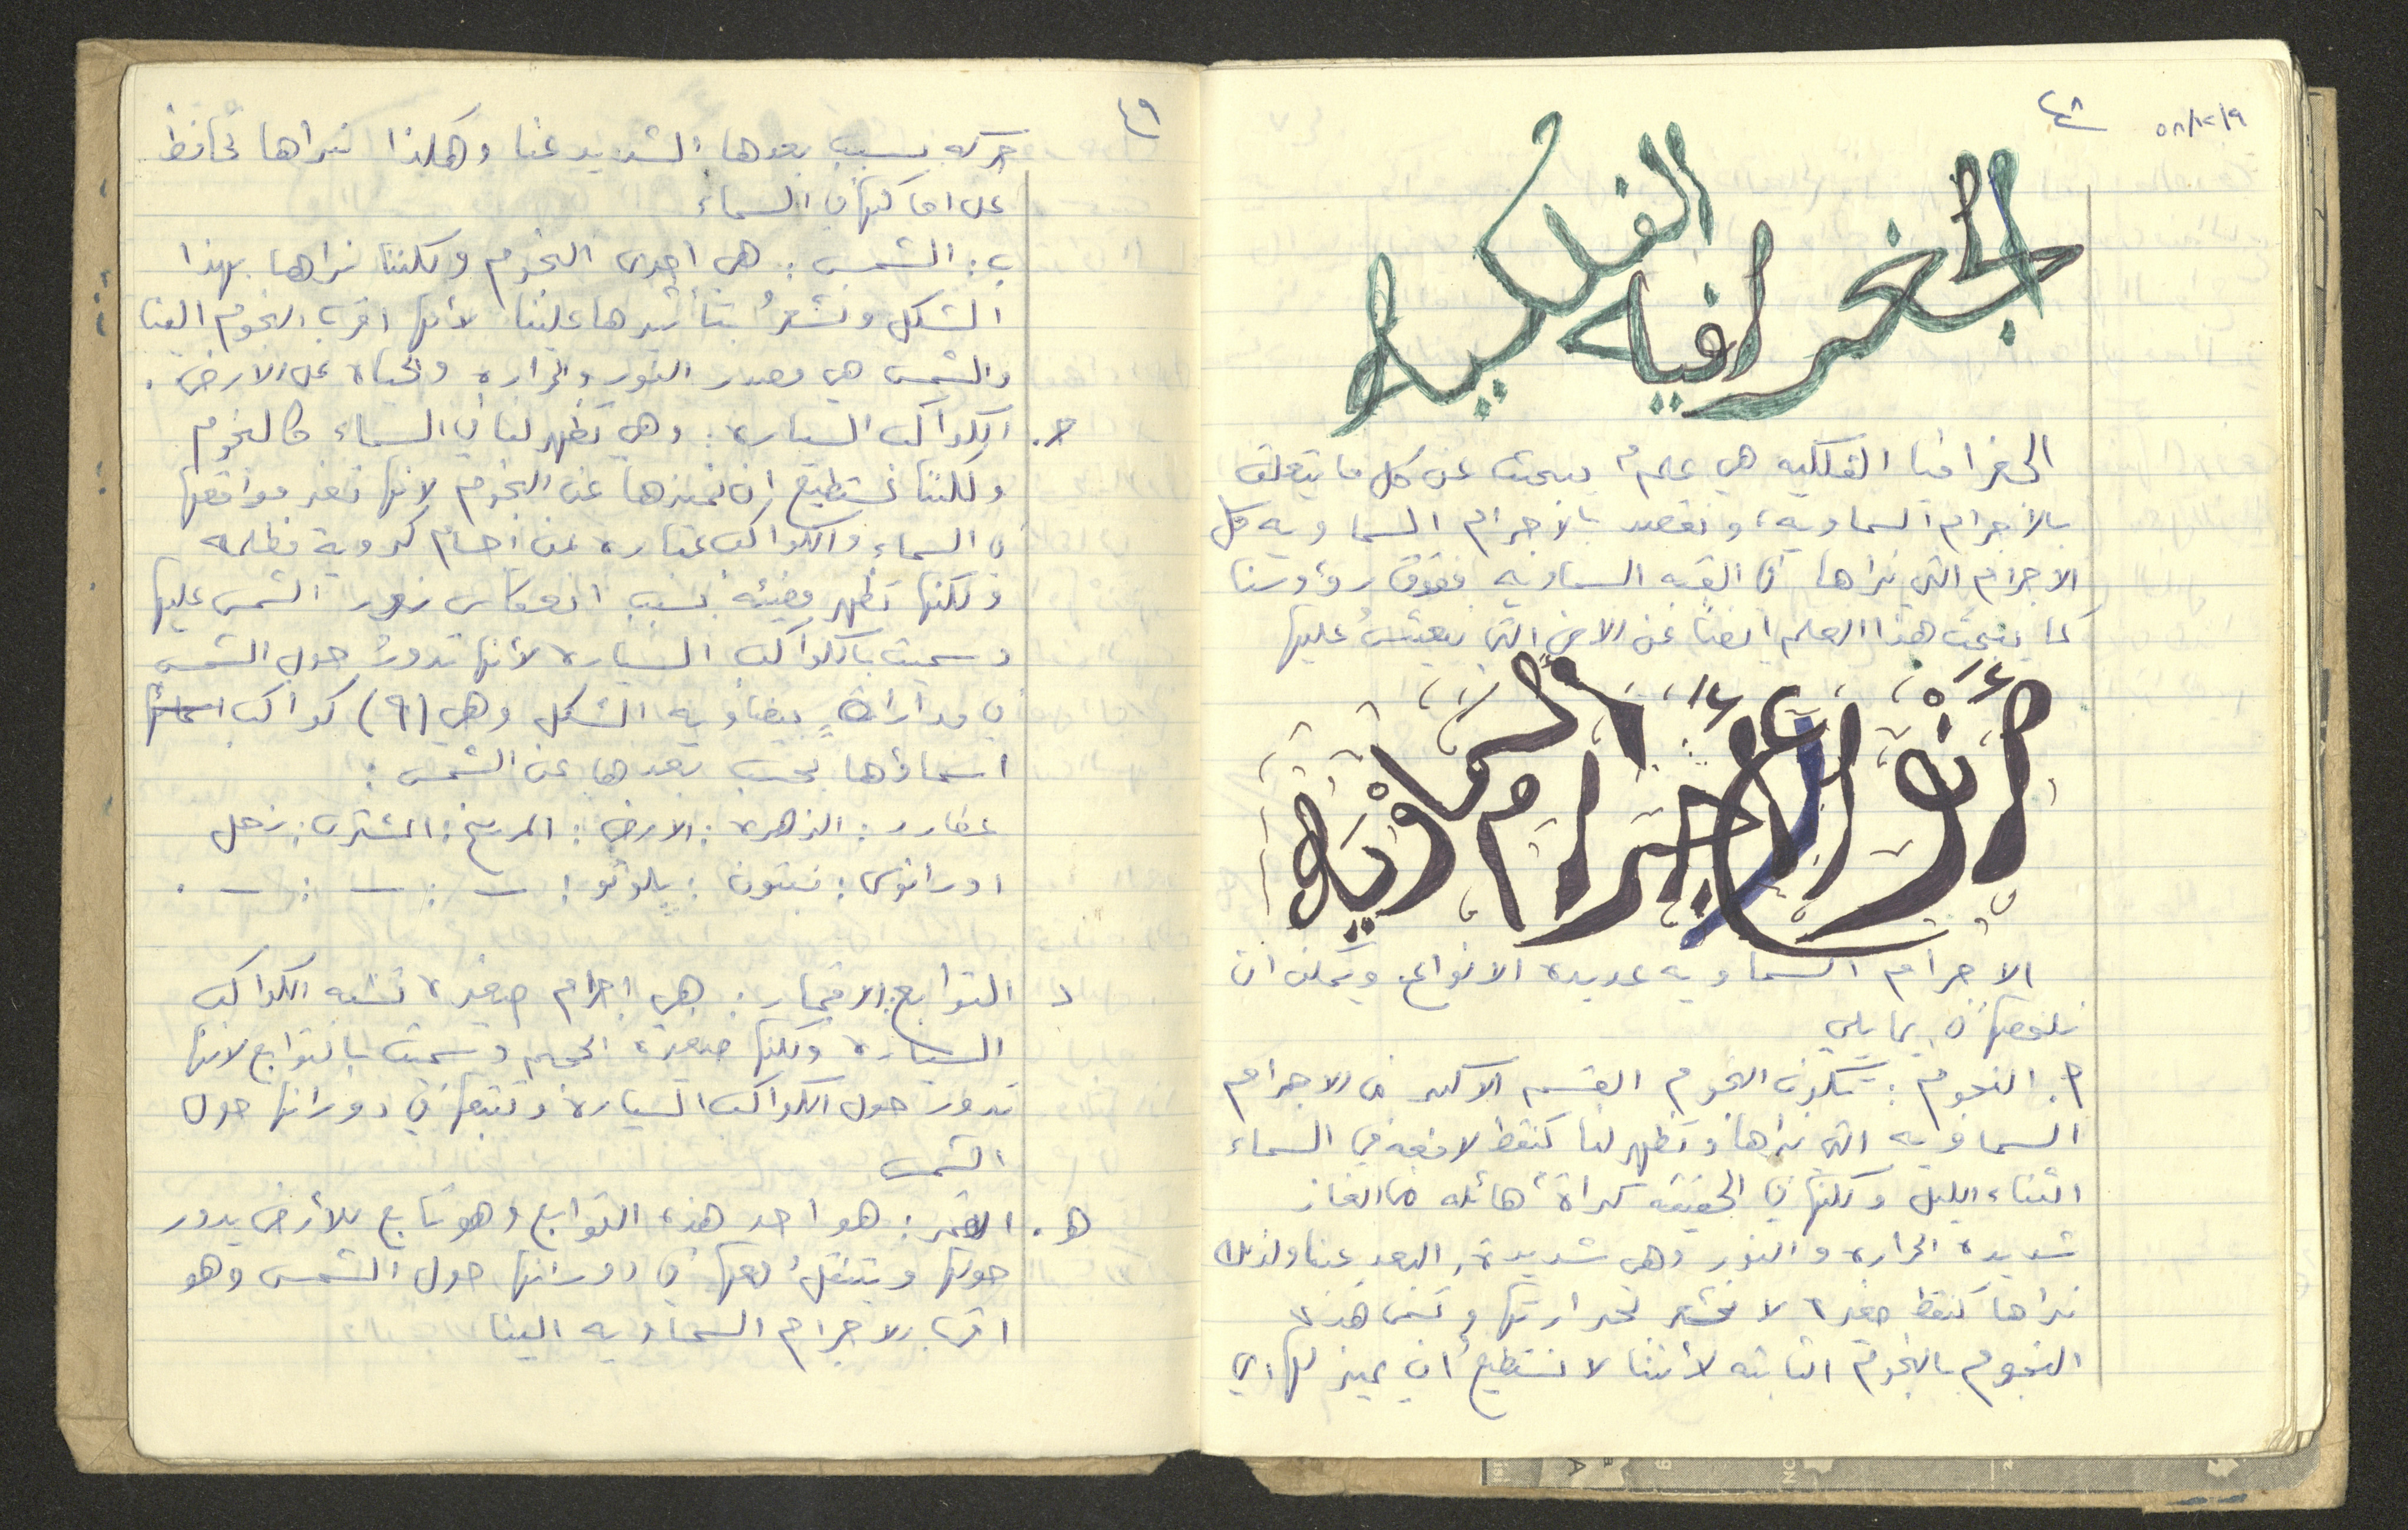 ٥٨/١٢/٩
٤٨
الجغرافيه الفلكيه
الجغرافيا الفلكيه هي علمٌ يبحث عن كل ما يتعلق
بالاجرام السماويه، ونقصد بالاجرام السماويه كل
الاجرام التي نراها في القبه السماويه فوق رؤوسنا
كما يبحث هذا العلم ايضاً عن الارض التي نعيشُ عليها
أنواع الأجرام السماويه
الاجرام السماويه عديده الانواع. ويمكن ان
نلخصها فيما يلي
ا. النجوم: تتكون النجوم القسم الاكبر من الاجرام
السماويه التي نراها وتظهر لنا كنقط لامعه في السماء
اثناء الليل ولكنها في الحقيقه كراة هائله من الغاز
شديده الحراره والنور وهي شديدة البعد عنا ولذلك
نراها كنقط صغيره لا نشعر بحرارتها وتسمى هذه
النجوم بالنجوم الثابته لأننا لا نستطيع أن نميز لها اي
٤٩
حركه بسبب بعدها الشديد عنا وهكذا نراها تحافظ
على اماكنها في السماء
ب: الشمس: هي احدى النجوم ولكننا نراها بهذا
الشكل ونشعرُ بتأثيرها علينا لأنها اقرب النجوم الينا
والشمس هي مصدر النور والحراره والحياه على الارض.
ج. الكواكب السياره: وهي تظهر لنا في السماء كالنجوم
ولكننا نستطيع ان نميزها عن النجوم لانها تغير مواقعها
في السماء والكواكب عباره عن اجسام كرويه مظلمه
ولكنها تظهر مضيئه بسبب انعكاس نور الشمس عليها
وسميت بالكواكب السياره لأنها تدورُ حول الشمس
في مداراتٍ بيضاويه الشكل وهي (٩) كواكب اسمائها
اسماؤها بحسب بعدها عن الشمس:
عطارد: الزهره: الارض: المريخ: المشتري: زحل
اورانوس: نبتون: بلوتو: ــ : ــ : ــ .
د التوابع: الاقمار: هي اجرام صغيره تشبه الكواكب
السياره ولكنها صغيره الحجم وسميت بالتوابع لانها
تدور حول الكواكب السياره وتتبعها في دورانها حول
الشمس
هـ. القمر: هو احد هذه التوابع وهو تابع للأرض يدور
حولها وينتقلُ معها في دورانها حول الشمس وهو
اقرب الاجرام السماويه الينا